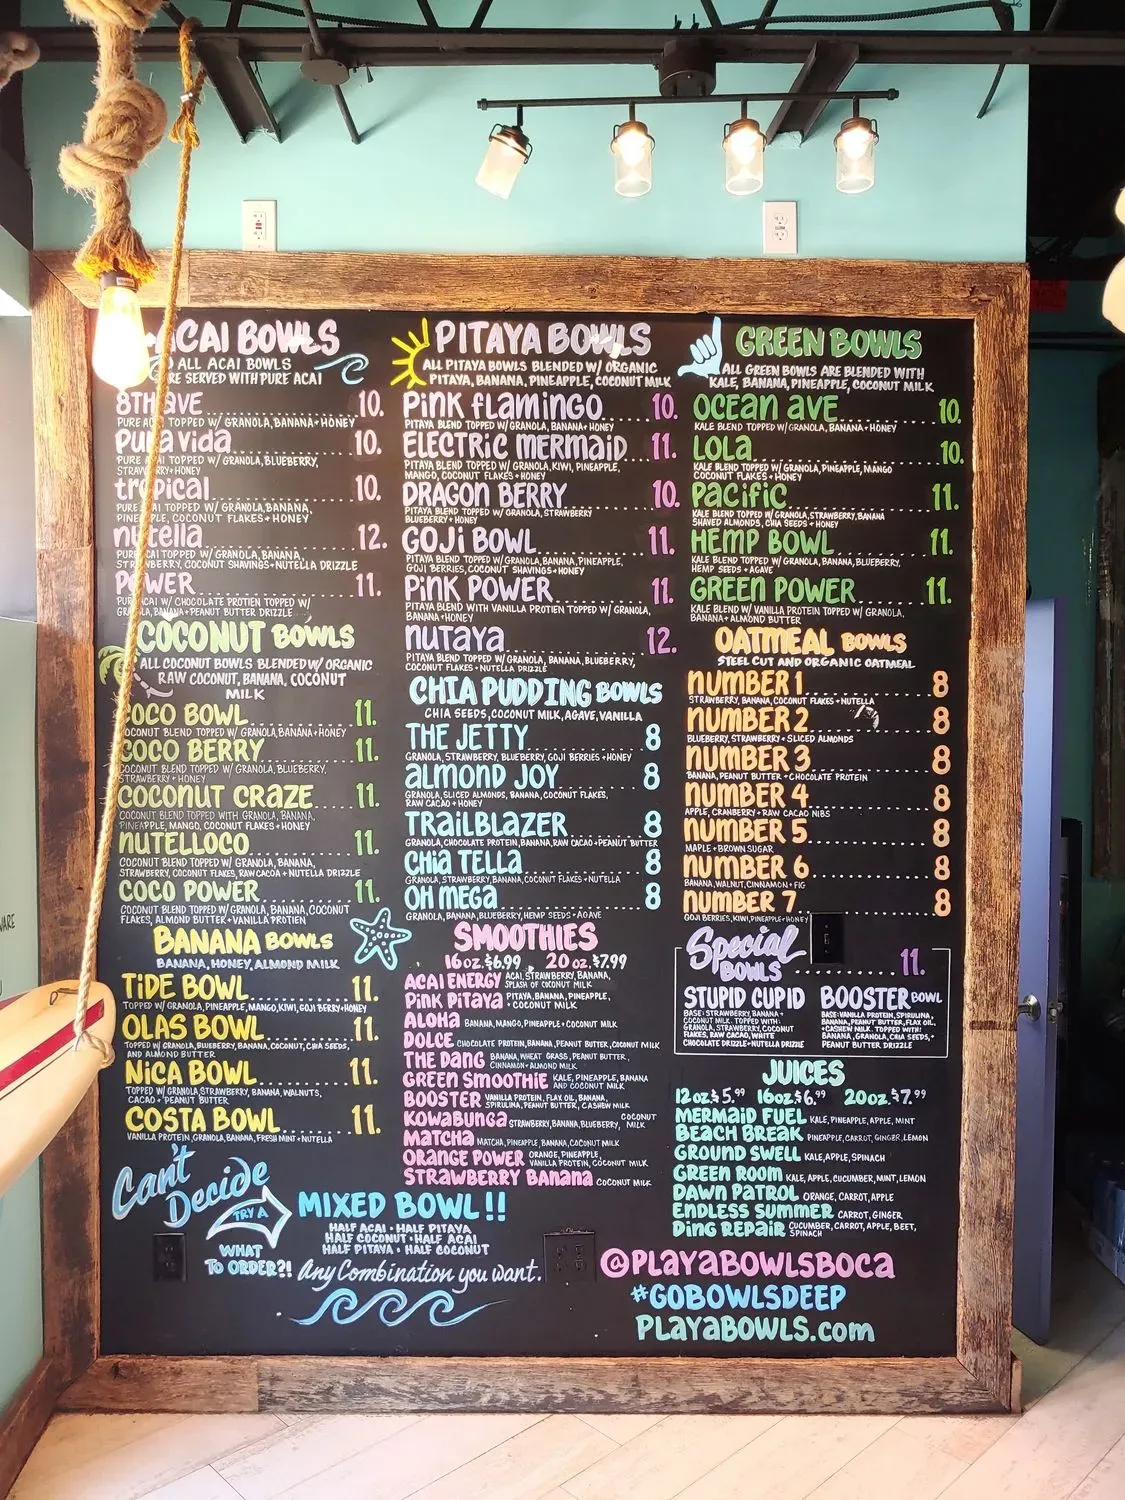 ACAI BOWLS
ALL ACAI BOWLS
ARE SERVED WITH PURE ACAI
8TH AVE 10.
PURE ACAI TOPPED W/ GRANOLA, BANANA + HONEY
PURA VIDA 10.
PURE ACAI TOPPED W/ GRANOLA, BLUEBERRY,
STRAWBERRY + HONEY
TROPICAL 10.
PURE ACAI TOPPED W/ GRANOLA, BANANA,
PINEAPPLE, COCONUT FLAKES + HONEY
NUTELLA 12.
PURE ACAI TOPPED W/ GRANOLA, BANANA,
STRAWBERRY, COCONUT SHAVINGS + NUTELLA DRIZZLE
POWER 11.
PURE ACAI W/ CHOCOLATE PROTIEN TOPPED W/
GRANOLA, BANANA + PEANUT BUTTER DRIZZLE
COCONUT BOWLS
ALL COCONUT BOWLS BLENDED W/ ORGANIC
RAW COCONUT, BANANA, COCONUT
MILK
COCO BOWL 11.
COCONUT BLEND TOPPED W/ GRANOLA, BANANA + HONEY
COCO BERRY 11.
COCONUT BLEND TOPPED W/ GRANOLA, BLUEBERRY,
STRAWBERRY + HONEY
COCONUT CRAZE 11.
COCONUT BLEND TOPPED WITH GRANOLA, BANANA,
PINEAPPLE, MANGO, COCONUT FLAKES + HONEY
NUTELLOCO 11.
COCONUT BLEND TOPPED W/ GRANOLA, BANANA,
STRAWBERRY, COCONUT FLAKES, RAW CACOA + NUTELLA DRIZZLE
COCO POWER 11.
COCONUT BLEND TOPPED W/ GRANOLA, BANANA, COCONUT
FLAKES, ALMOND BUTTER + VANILLA PROTIEN
BANANA BOWLS
BANANA, HONEY, ALMOND MILK
TIDE BOWL 11.
TOPPED W/ GRANOLA, PINEAPPLE, MANGO, KIWI, GOJI BERRY + HONEY
OLAS BOWL 11.
TOPPED W/ GRANOLA, BLUEBERRY, BANANA, COCONUT, CHIA SEEDS,
AND ALMOND BUTTER
NICA BOWL 11.
TOPPED W/ GRANOLA, STRAWBERRY, BANANA, WALNUTS,
CACAO + PEANUT BUTTER
COSTA BOWL 11.
VANILLA PROTEIN, GRANOLA, BANANA, FRESH MINT + NUTELLA
Can't
Decide
TRY A
WHAT
TO ORDER?!
MIXED BOWL!!
HALF ACAI • HALF PITAYA
HALF COCONUT • HALF ACAI
HALF PITAYA • HALF COCONUT
Any Combination you want.
PITAYA BOWLS
ALL PITAYA BOWLS BLENDED W/ ORGANIC
PITAYA, BANANA, PINEAPPLE, COCONUT MILK
PINK FLAMINGO 10.
PITAYA BLEND TOPPED W/ GRANOLA, BANANA + HONEY
ELECTRIC MERMAID 11.
PITAYA BLEND TOPPED W/ GRANOLA, KIWI, PINEAPPLE,
MANGO, COCONUT FLAKES + HONEY
DRAGON BERRY 10.
PITAYA BLEND TOPPED W/ GRANOLA, STRAWBERRY
BLUEBERRY + HONEY
GOJI BOWL 11.
PITAYA BLEND TOPPED W/ GRANOLA, BANANA, PINEAPPLE,
GOJI BERRIES, COCONUT SHAVINGS + HONEY
PINK POWER 11.
PITAYA BLEND WITH VANILLA PROTIEN TOPPED W/ GRANOLA,
BANANA + HONEY
NUTAYA 12.
PITAYA BLEND TOPPED W/ GRANOLA, BANANA, BLUEBERRY,
COCONUT FLAKES + NUTELLA DRIZZLE
CHIA PUDDING BOWLS
CHIA SEEDS, COCONUT MILK, AGAVE, VANILLA
THE JETTY 8
GRANOLA, STRAWBERRY, BLUEBERRY, GOJI BERRIES + HONEY
ALMOND JOY 8
GRANOLA, SLICED ALMONDS, BANANA, COCONUT FLAKES,
RAW CACAO + HONEY
TRAILBLAZER 8
GRANOLA, CHOCOLATE PROTEIN, BANANA, RAW CACAO + PEANUT BUTTER
CHIA TELLA 8
GRANOLA, STRAWBERRY, BANANA, COCONUT FLAKES + NUTELLA
OH MEGA 8
GRANOLA, BANANA, BLUEBERRY, HEMP SEEDS + AGAVE
SMOOTHIES
16 oz. $6.99 20 oz. $7.99
ACAI ENERGY ACAI, STRAWBERRY, BANANA,
SPLASH OF COCONUT MILK
PINK PITAYA PITAYA, BANANA, PINEAPPLE,
+ COCONUT MILK
ALOHA BANANA, MANGO, PINEAPPLE + COCONUT MILK
DOLCE CHOCOLATE PROTEIN, BANANA, PEANUT BUTTER, COCONUT MILK
THE DANG BANANA, WHEAT GRASS, PEANUT BUTTER,
CINNAMON + ALMOND MILK
GREEN SMOOTHIE KALE, PINEAPPLE, BANANA
AND COCONUT MILK
BOOSTER VANILLA PROTEIN, FLAX OIL, BANANA,
SPIRULINA, PEANUT BUTTER, CASHEW MILK
KOWABUNGA STRAWBERRY, BANANA, BLUEBERRY, COCONUT MILK
MATCHA MATCHA, PINEAPPLE, BANANA, COCONUT MILK
ORANGE POWER ORANGE, PINEAPPLE,
VANILLA PROTEIN, COCONUT MILK
STRAWBERRY BANANA COCONUT MILK
GREEN BOWLS
ALL GREEN BOWLS ARE BLENDED WITH
KALE, BANANA, PINEAPPLE, COCONUT MILK
OCEAN AVE 10.
KALE BLEND TOPPED W/ GRANOLA, BANANA + HONEY
LOLA 10.
KALE BLEND TOPPED W/ GRANOLA, PINEAPPLE, MANGO
COCONUT FLAKES + HONEY
PACIFIC 11.
KALE BLEND TOPPED W/ GRANOLA, STRAWBERRY, BANANA
SHAVED ALMONDS, CHIA SEEDS + HONEY
HEMP BOWL 11.
KALE BLEND TOPPED W/ GRANOLA, BANANA, BLUEBERRY,
HEMP SEEDS + AGAVE
GREEN POWER 11.
KALE BLEND W/ VANILLA PROTEIN TOPPED W/ GRANOLA,
BANANA + ALMOND BUTTER
OATMEAL BOWLS
STEEL CUT AND ORGANIC OATMEAL
NUMBER 1 8
STRAWBERRY, BANANA, COCONUT FLAKES + NUTELLA
NUMBER 2 8
BLUEBERRY, STRAWBERRY + SLICED ALMONDS
NUMBER 3 8
BANANA, PEANUT BUTTER + CHOCOLATE PROTEIN
NUMBER 4 8
APPLE, CRANBERRY + RAW CACAO NIBS
NUMBER 5 8
MAPLE + BROWN SUGAR
NUMBER 6 8
BANANA, WALNUT, CINNAMON + FIG
NUMBER 7 8
GOJI BERRIES, KIWI, PINEAPPLE + HONEY
Special
BOWLS 11.
STUPID CUPID
BASE: STRAWBERRY, BANANA +
COCONUT MILK. TOPPED WITH:
GRANOLA, STRAWBERRY, COCONUT
FLAKES, RAW CACAO, WHITE
CHOCOLATE DRIZZLE + NUTELLA DRIZZLE
BOOSTER BOWL
BASE: VANILLA PROTEIN, SPIRULINA,
BANANA, PEANUT BUTTER, FLAX OIL,
+ CASHEW MILK. TOPPED WITH:
BANANA, GRANOLA, CHIA SEEDS, +
PEANUT BUTTER DRIZZLE
JUICES
12 oz $5.99 16 oz $6.99 20 oz. $7.99
MERMAID FUEL KALE, PINEAPPLE, APPLE, MINT
BEACH BREAK PINEAPPLE, CARROT, GINGER, LEMON
GROUND SWELL KALE, APPLE, SPINACH
GREEN ROOM KALE, APPLE, CUCUMBER, MINT, LEMON
DAWN PATROL ORANGE, CARROT, APPLE
ENDLESS SUMMER CARROT, GINGER
DING REPAIR CUCUMBER, CARROT, APPLE, BEET,
SPINACH
@PLAYABOWLSBOCA
#GOBOWLSDEEP
PLAYABOWLS.com